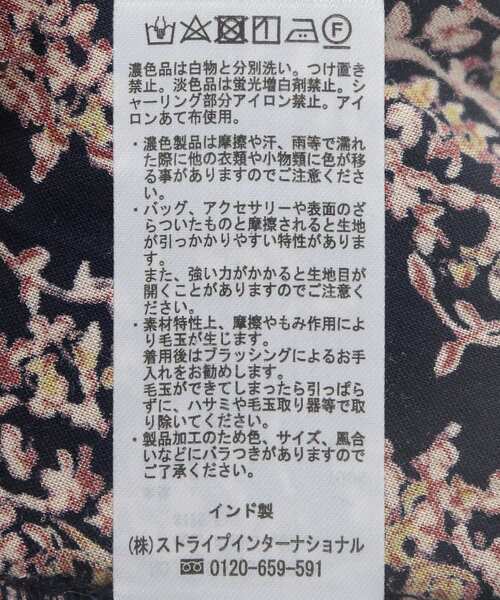 濃色品は白物と分別洗い。つけ置き
禁止。淡色品は蛍光増白剤禁止。シ
ャーリング部分アイロン禁止。アイ
ロンあて布使用。
・濃色製品は摩擦や汗、雨等で濡れ
た際に他の衣類や小物類に色が移
る事がありますのでご注意くださ
い。
・バッグ、アクセサリーや表面のざ
らついたものと摩擦されると生地
が引っかかりやすい特性がありま
す。
また、強い力がかかると生地目が
開くことがありますのでご注意く
ださい。
・素材特性上、摩擦やもみ作用によ
り毛玉が生じます。
着用後はブラッシングによるお手
入れをお勧めします。
毛玉ができてしまったら引っぱら
ずに、ハサミや毛玉取り器等で取
り除いてください。
・製品加工のため色、サイズ、風合
いなどにバラつきがありますので
ご了承ください。
インド製
(株)ストライプインターナショナル
0120-659-591